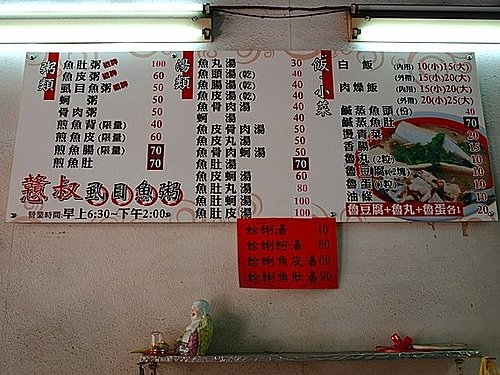 粥類
魚肚粥 招牌 100
魚皮粥 招牌 60
虱目魚粥 招牌 60
蚵 粥 50
骨肉粥 50
煎魚背(限量) 40
煎魚腸(限量) 60
煎魚頭 70
煎魚肚 70
憨叔虱目魚粥
營業時間:早上6:30~下午2:00
湯類
魚丸湯 30
魚頭湯(乾) 40
魚腸湯(乾) 40
魚皮湯(乾) 40
魚骨肉湯 40
蚵 湯 40
魚皮骨肉湯 50
魚皮丸湯 50
魚骨肉蚵湯 50
魚肚湯 70
魚皮蚵湯 60
魚肚丸湯 80
魚肚蚵湯 100
魚肚皮湯 100
飯·小菜
白飯 (內用) 10(小)15(大)
(外帶) 15(小)20(大)
肉燥飯 (內用) 15(小)20(大)
(外帶) 20(小)25(大)
鹹蒸魚頭(份) 40
鹹蒸魚肚 70
燙青菜 20
香腸 15
魯丸(2粒) 10
魯豆腐(2塊) 10
魯蛋(粒) 10
油條 10
魯豆腐+魯丸+魯蛋各1 20
蛤蜊湯 40
蛤蜊蚵湯 60
蛤蜊魚皮湯 60
蛤蜊魚肚湯 90